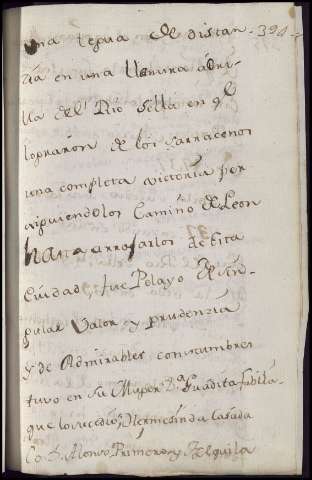 una legua de distan- 390
cia en una llanura a ori-
lla del Rio Sella en ql
lograron de los sarracenos
una completa victoria per
siguiendolos Camino de Leon
hasta arrojarlos de esta
Ciudad, fue Pelayo de sin-
gular Valor y prudenzia
y de Admirables convcumbres
tuvo en su Muger Da Gaudiosa
que lo sucedio, Hermesinda casada
Co D. Alonso Primero y